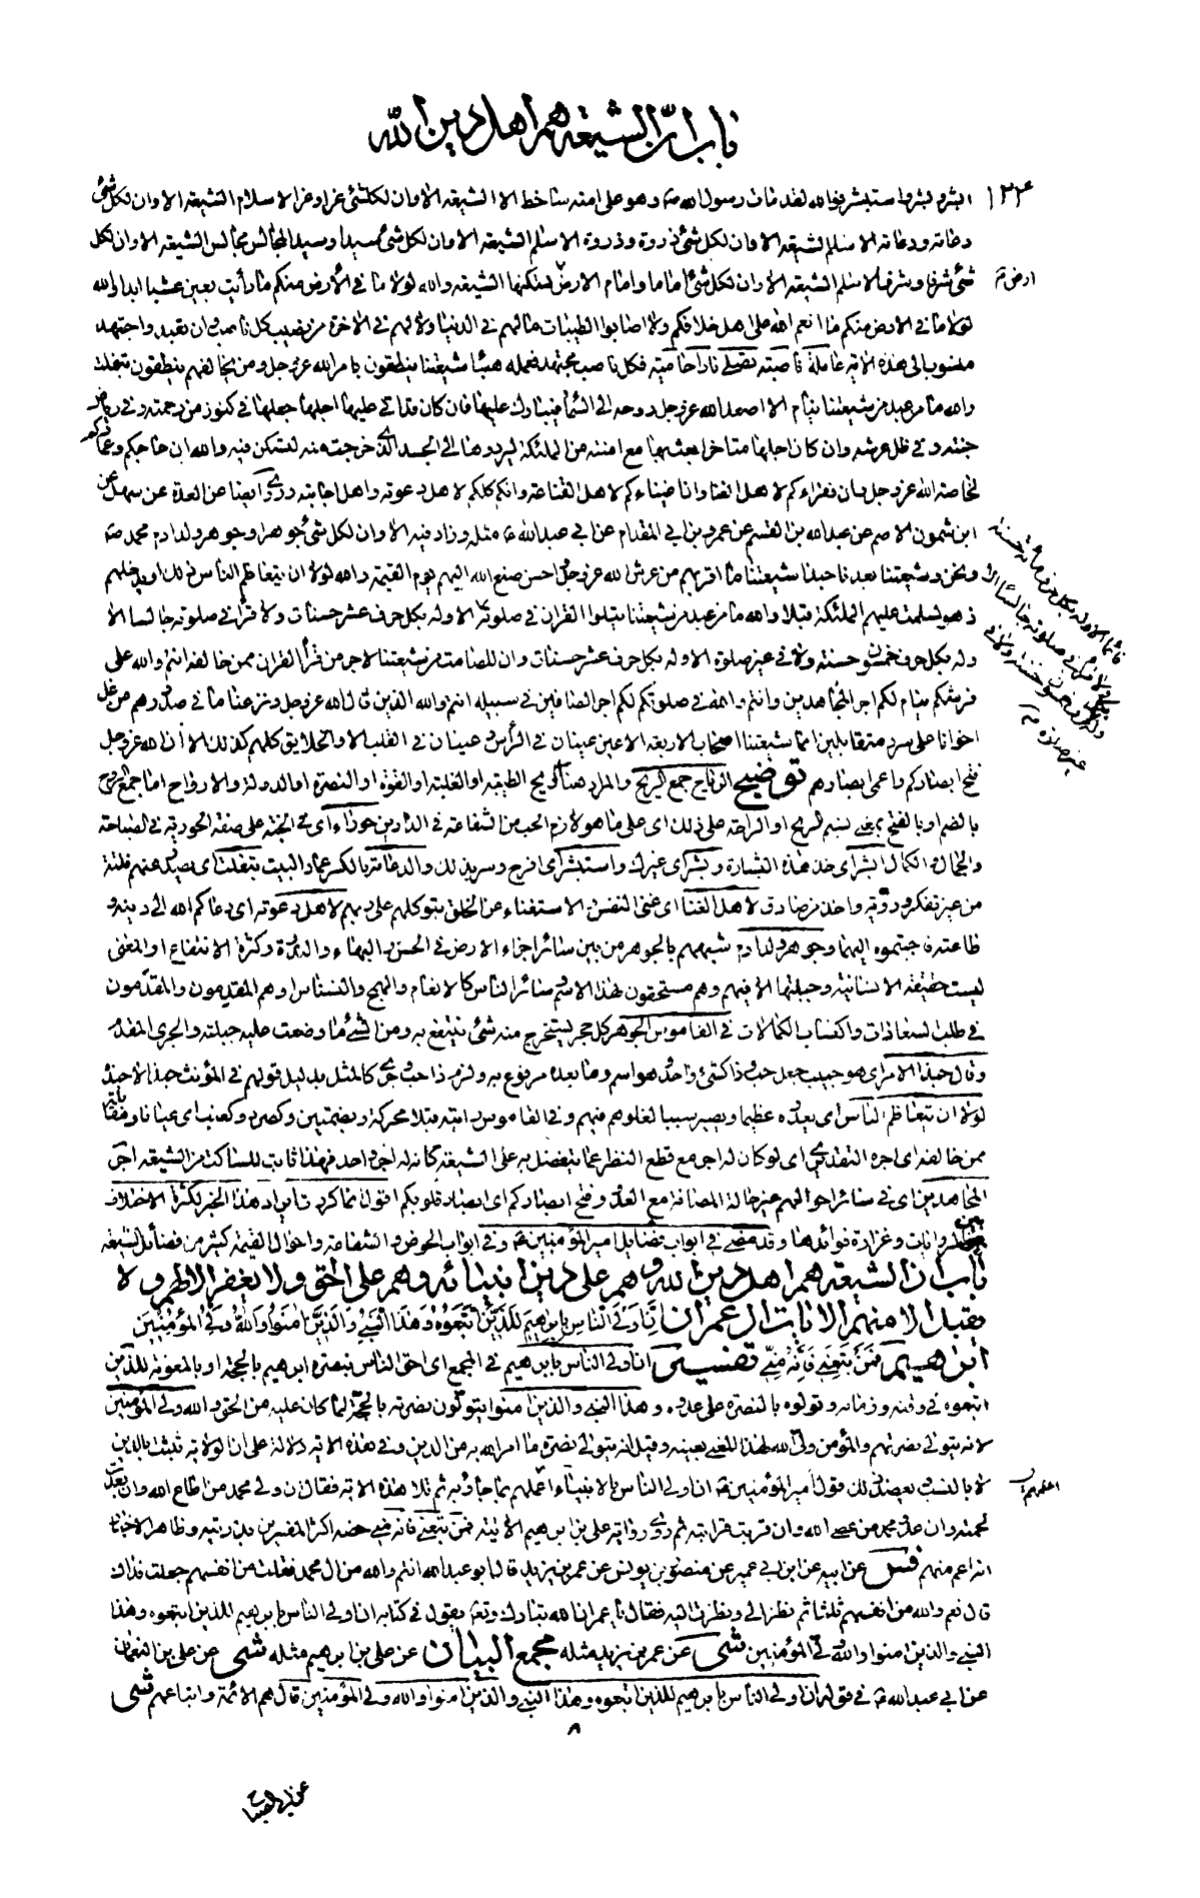 باب ان الشيعة هم اهل دين الله
١٣٤
ابشر و بشر فاستبشر فوالله لقد مات رسول الله ص و هو على امته ساخط الا الشيعة الا و ان لكل شئ عزا و عز الاسلام الشيعة الا و ان لكل شئ
دعامة و دعامة الاسلام الشيعة الا و ان لكل شئ ذروة و ذروة الاسلام الشيعة الا و ان لكل شئ سيدا و سيد المجالس مجالس الشيعة الا و ان لكل
شئ شرفا و شرف الاسلام الشيعة الا و ان لكل شئ اماما و امام الارض ارض تسكنها الشيعة و الله لولا ما في الأرض منكم ما رأيت بعين عشبا ابدا و الله
لولا ما في الارض منكم ما انعم الله على اهل خلافكم و لا اصابوا الطيبات ما لهم في الدنيا و لا لهم في الاخرة من نصيب كل ناصب و ان تعبد و اجتهد
منسوب الى هذه الاية عاملة ناصبة تصلى نارا حامية فكل ناصب مجتهد فعمله هباء شيعتنا ينطقون بامر الله عز و جل و من يخالفهم ينطقون بتفلت
والله ما من عبد من شيعتنا ينام الا اصعد الله عز و جل روحه الى السماء فيبارك عليها فان كان قد اتى عليها اجلها جعلها في كنوز من رحمته و في رياض
جنته و في ظل عرشه و ان كان اجلها متاخرا بعث بها مع امنته من الملئكة ليردوها الى الجسد الذي خرجت منه لتسكن فيه و الله ان حاجكم و عماركم
لخاصة الله عز و جل و ان فقراءكم لاهل الغنا و ان اغنياءكم لاهل القناعة و انكم كلكم لاهل دعوته و اهل اجابته و روى ايضا عن العدة عن سهل عن
ابن شمون عن الاصم عن عبد الله بن القسم عن عمرو بن ابي المقدام عن ابي عبد الله ع مثله و زاد فيه الا و ان لكل شئ جوهرا و جوهر ولد ادم محمد ص
و نحن و شيعتنا بعدنا حبذا شيعتنا ما اقربهم من عرش الله عز و جل و احسن صنع الله اليهم يوم القيمة و الله لولا ان يتعاظم الناس ذلك او يدخلهم
زهو لسلمت عليهم الملئكة قبلا و الله ما من عبد من شيعتنا يتلو القران في صلوته قائما الا و له بكل حرف عشر حسنات و لا قرأ في صلوته جالسا الا
و له بكل حرف خمسون حسنة و لا في غير صلوة الا و له بكل حرف عشر حسنات و ان للصامت من شيعتنا لاجر من قرأ القران ممن خالفه انتم و الله على
فرشكم نيام لكم اجر المجاهدين و انتم و الله في صلوتكم لكم اجر الصافين في سبيله انتم و الله الذين قال الله عز و جل و نزعنا ما في صدورهم من غل
اخوانا على سرر متقابلين انما شيعتنا اصحاب الاربعة الاعين عينان في الرأس و عينان في القلب الا و الخلايق كلهم كذلك الا ان الله عز و جل
فتح ابصاركم و اعمى ابصارهم توضيح الارياح جمع الريح و المراد هنا الريح الطيبة او الغلبة او القوة او النصرة او الدولة و الارواح اما جمع الروح
بالضم او بالفتح بمعنى نسيم الريح او الراحة على ذلك اى على ما هو لازم الحب من الشفاعة في الدارين حوراء اى في الجنة على صفة الحورية في الصباحة
والجمال و الكمال ابشر اى خذ هذه البشارة و بشر اى غيرك و استبشر اى افرح و سر بذلك و الدعامة بالكسر عماد البيت بتفلت اى يصدر عنهم فلتة
من غير تفكر و روية و اخذ من صادق لاهل الغنا اى غنى النفس و الاستغناء عن الخلق بتوكلهم على ربهم لاهل دعوته اى دعاكم الله الى دينه و
طاعته فاجبتموه اليهما و جوهر ولد ادم شبههم بالجوهر من بين سائر اجزاء الارض في الحسن و البهاء و الندرة و كثرة الانتفاع او المعنى
ليست حقيقة الانسانية و جبلتها الا فيهم و هم مستحقون لهذا الاسم و سائر الناس كالانعام و الهمج و النسناس او هم المقدمون و المقدمون
في طلب السعادات و اكتساب الكمالات في القاموس الجوهر كل حجر يستخرج منه شئ ينتفع به و من الشئ ما وضعت عليه جبلته و الجرى المقدم
و قال حبذا الامر اى هو حبيب جعل حب و ذا كشئ واحد و هو اسم و ما بعده مرفوع به و لزم ذا حب و جرى كالمثل بدليل قولهم في المؤنث حبذا لا حبذه
لولا ان يتعاظم الناس اى يعدوه عظيما و يصير سببا لغلوهم فيهم و في القاموس رايته قبلا محركة و بضمتين و كصرد و كعنب اى عيانا و مقابلة
ممن خالفه اى اجره التقديري اى لو كان له اجر مع قطع النظر عما يتفضل به على الشيعة كانه له اجر واحد فهذا ثابت للساكت من الشيعة اجر
المجاهدين اى في سائر احوالهم غير حالة المصافة مع العدو و فتح ابصاركم اى ابصار قلوبكم اقول انما كررت ايراد هذا الخبر لكثرة الاختلاف
بين الروايات و غزارة فوائدها و قد مضى في ابواب فضايل امير المؤمنين ع و في ابواب الحوض و الشفاعة و احوال القيمة كثير من فضائل الشيعة
باب ان الشيعة هم اهل دين الله و هم على دين انبيائه و هم على الحق و لا يغفر الا لهم و لا
يقبل الا منهم الايات ال عمران ان اولى الناس بابرهيم للذين اتبعوه و هذا النبى و الذين امنوا و الله ولى المؤمنين
ابرهيم فمن تبعنى فانه منى تفسير ان اولى الناس بابرهيم في المجمع اى احق الناس بنصرة ابرهيم بالحجة او بالمعونة للذين
اتبعوه في وقته و زمانه و تولوه بالنصرة على عدوه و هذا النبى و الذين امنوا يتولون نصرته بالحجة لما كان عليه من الحق و الله ولى المؤمنين
لانه يتولى نصرتهم و المؤمن ولى الله لهذا المعنى بعينه و قيل لانه يتولى نصرة ما امر الله به من الدين و في هذه الاية دلالة على ان الولاية تثبت بالدين
لا بالنسب يعضد ذلك قول امير المؤمنين ع ان اولى الناس بالانبياء اعملهم بما جاؤا به ثم تلا هذه الاية فقال ان ولى محمد من اطاع الله و ان بعدت
لحمته و ان عدو محمد من عصى الله و ان قربت قرابته ثم روى رواية على بن ابرهيم الاتية فمن تبعنى فانه منى خصه اكثر المفسرين بذريته و ظاهر الاخبار
انه اعم منهم فس عن ابيه عن ابن ابى عمير عن منصور بن يونس عن عمر بن يزيد قال ابو عبد الله انتم و الله من ال محمد فقلت من انفسهم جعلت فداك
قال نعم و الله من انفسهم ثلثا ثم نظر الى و نظرت اليه فقال يا عمر ان الله تبارك و تعالى يقول في كتابه ان اولى الناس بابرهيم للذين اتبعوه و هذا
النبى و الذين امنوا و الله ولى المؤمنين شى عن عمر بن يزيد مثله مجمع البيان عن على بن ابرهيم مثله شى عن على بن النعمان
عن ابى عبد الله ع في قوله ان اولى الناس بابرهيم للذين اتبعوه و هذا النبى و الذين امنوا و الله ولى المؤمنين قال هم الائمة و اتباعهم شى